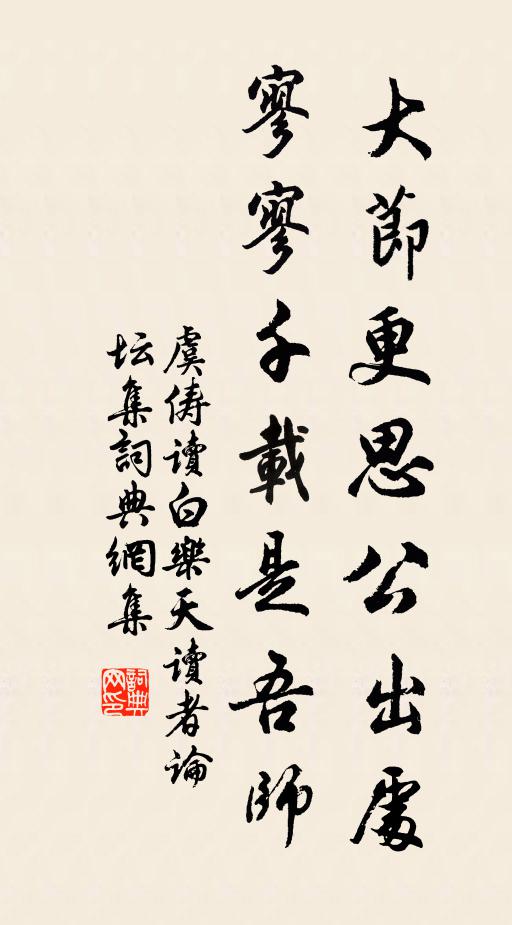 大節更思公出處
寥寥千載是吾師
虞俦讀白樂天讀者論
坛集詞典網集
詞典网印